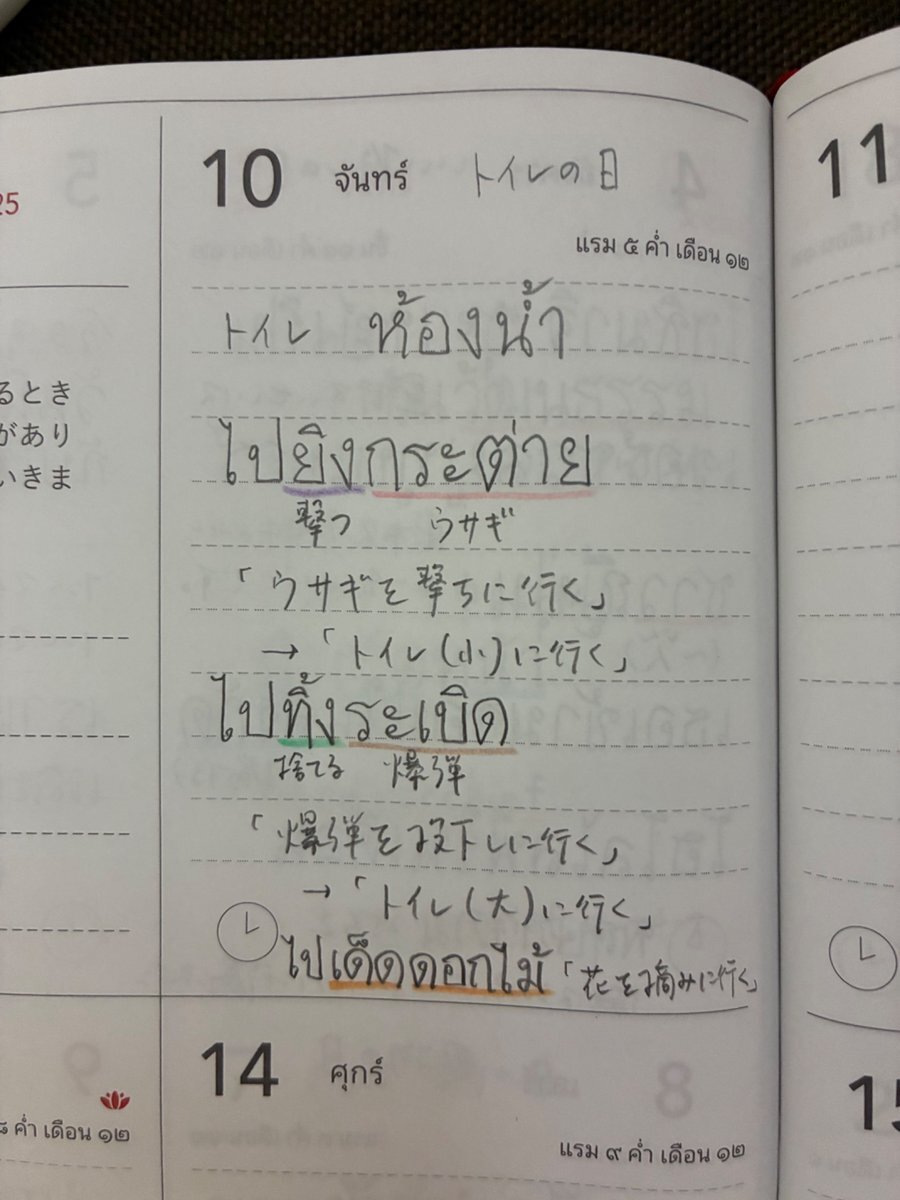 25
るとき
があり
いきま
10 จันทร์ トイレの日
แรม ๕ ค่ำ เดือน ๑๒
トイレ ห้องน้ำ
ไปยิงกระต่าย
撃つ ウサギ
「ウサギを撃ちに行く」
→「トイレ(小)に行く」
ไปทิ้งระเบิด
捨てる 爆弾
「爆弾を投下しに行く」
→「トイレ(大)に行く」
ไปเด็ดดอกไม้「花を摘みに行く」
ค่ำ เดือน ๑๒
14 ศุกร์
แรม ๙ ค่ำ เดือน ๑๒
11